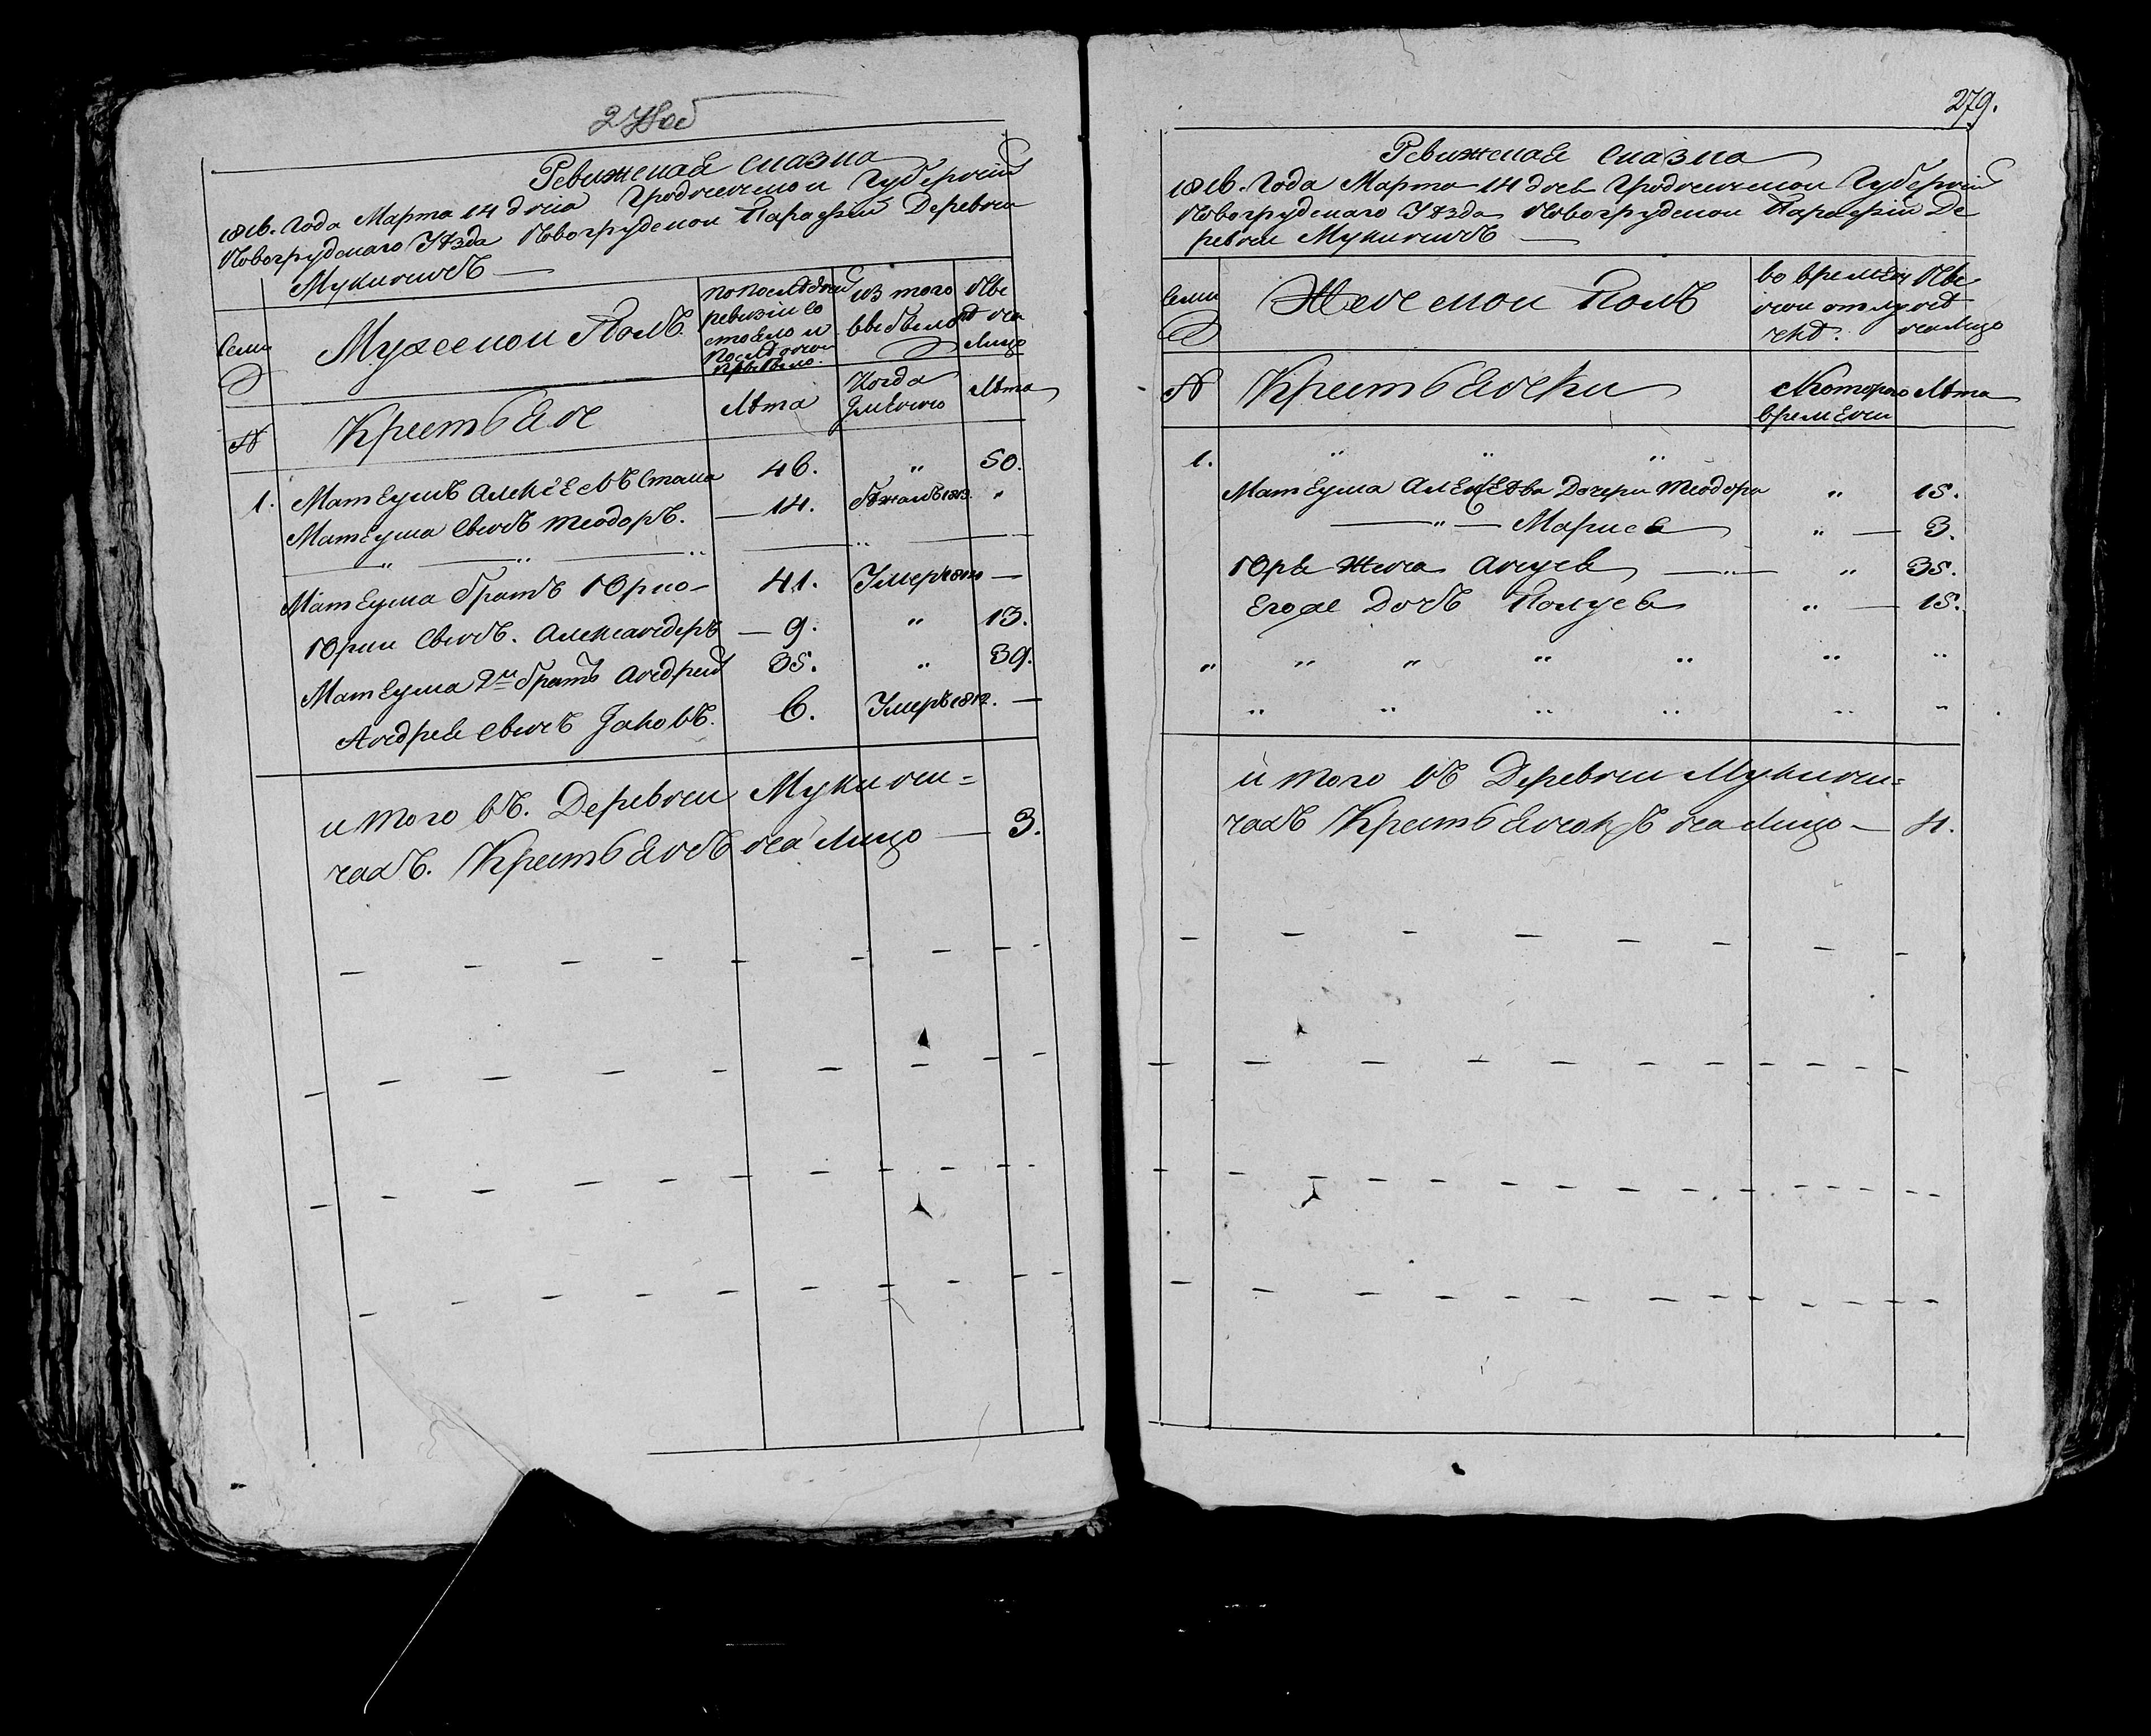 278 об
Ревижская сказка
1816. Года Марта 14 дня Гродненской Губернии
Новогрудскаго Уѣзда Новогрудской Парафіи Деревни
Мукиничъ
Семьи
Мужескои Полъ
по последней
ревизіи со
стояло и
послѣ оной
прибыло.
из того
выбыло
Ныне
на
лицо
№
Крестьяне
Лѣта
Когда
Именно
Лѣта
1. Матеушъ Алексеевъ 46. " 50.
Матеуша Сынъ Теодоръ. — 14. бѣжалъ 1813. "
" " "
Матеуша братъ Юрко 41. Умер 1811 —
Юрки Сынъ. Александеръ — 9. " 13.
Матеуша 2й братъ Андрей 35. " 39.
Андрея Сынъ Яковъ. 6. Умеръ 1812. —
и того въ. Деревни Мукини=
чахъ. Крестьянъ на лицо — 3.
279.
Ревижская Сказка
1816. Года Марта 14 дня Гродненской Губерніи
Новогрудскаго Уѣзда Новогрудской Парафіи Де
ревни Мукиничъ
Семьи
Женской Полъ
во времен
ной отлу
чкѣ.
Ны
нѣ
на лицо
№
Крестьянки
Скотораго
времени
Лѣта
1. " " "
Матеуша Алексеева Дочери Теодора " 15.
— " — Марися " — 3.
Юря Жена Ануся — " — " 35.
Егоже Дочь Полуся " — 15.
" " " " " " "
" " " " " "
и того въ Деревни Мукини=
чахъ Крестьянокъ на лицо — 4.